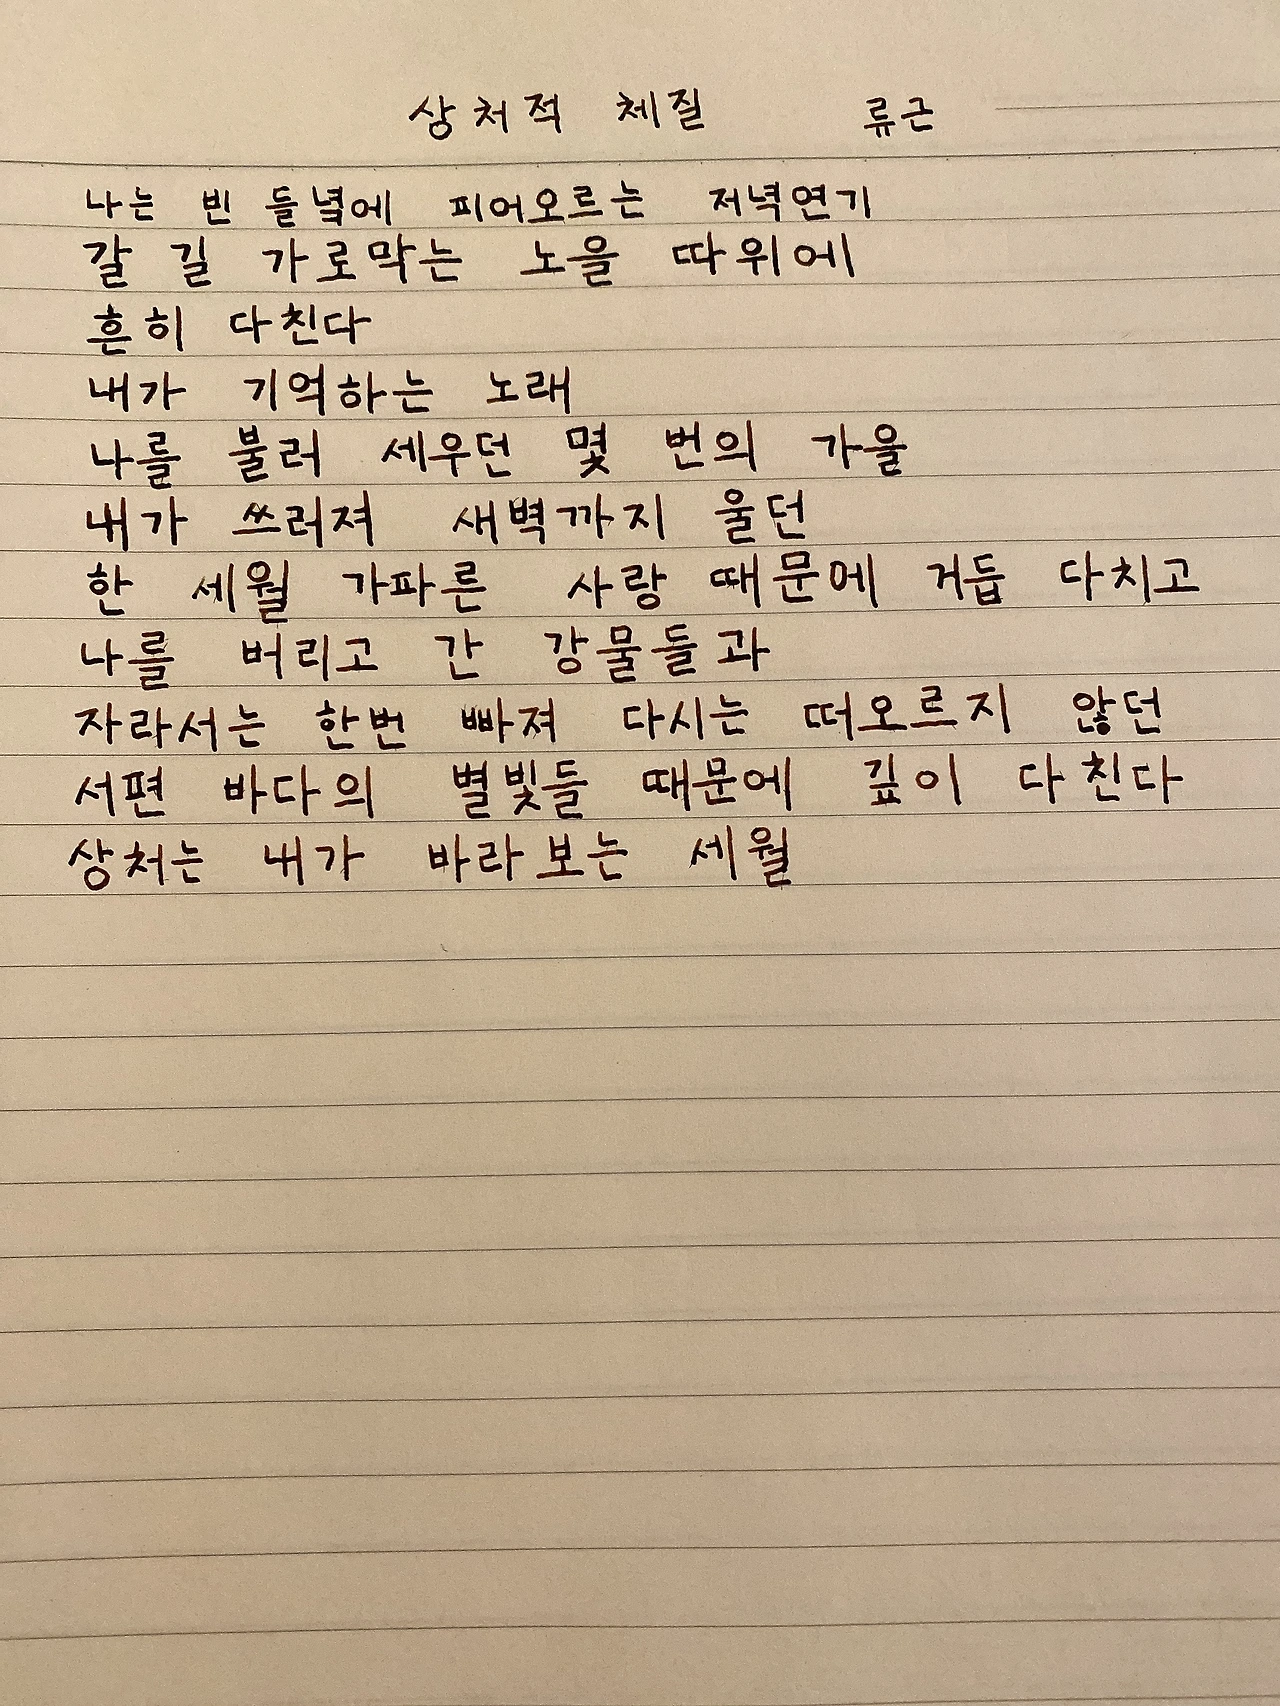 상처적 체질 류근
나는 빈 들녘에 피어오르는 저녁연기
갈 길 가로막는 노을 따위에
흔히 다친다
내가 기억하는 노래
나를 불러 세우던 몇 번의 가을
내가 쓰러져 새벽까지 울던
한 세월 가파른 사랑 때문에 거듭 다치고
나를 버리고 간 강물들과
자라서는 한번 빠져 다시는 떠오르지 않던
서편 바다의 별빛들 때문에 깊이 다친다
상처는 내가 바라보는 세월